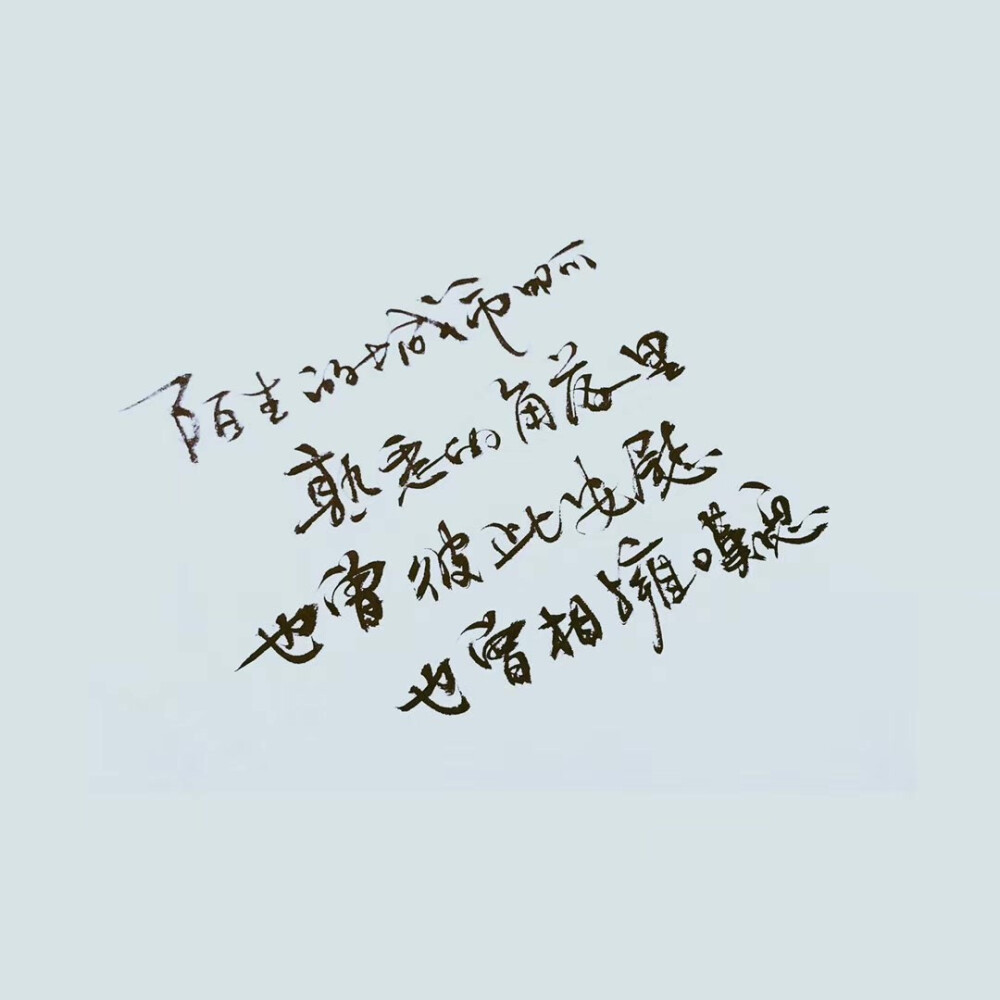 陌生的城市啊
熟悉的角落里
也曾彼此安慰
也曾相拥叹息